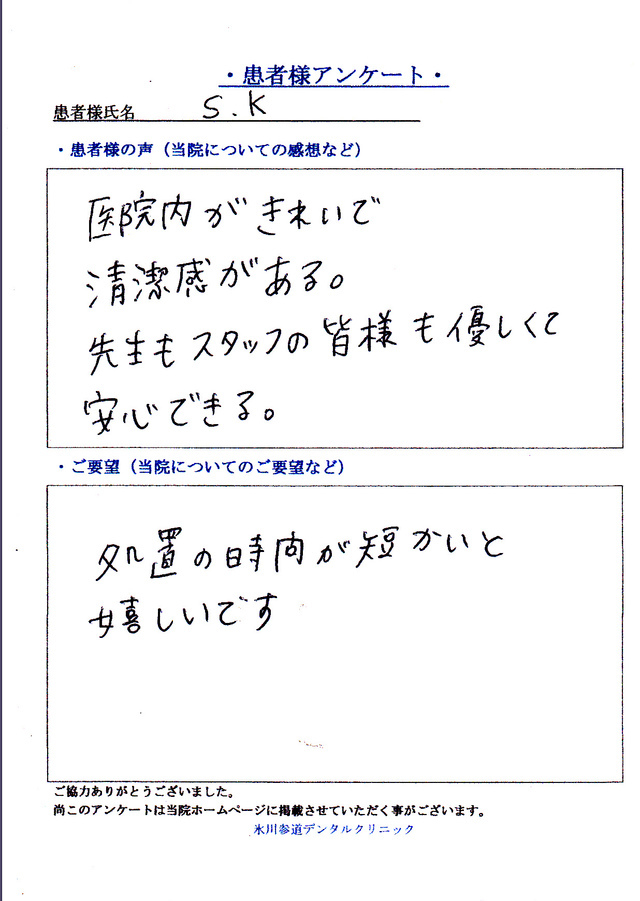 ・患者様アンケート・
患者様氏名 S.K
・患者様の声（当院についての感想など）
医院内がきれいで
清潔感がある。
先生もスタッフの皆様も優しくて
安心できる。
・ご要望（当院についてのご要望など）
処置の時間が短かいと
嬉しいです
ご協力ありがとうございました。
尚このアンケートは当院ホームページに掲載させていただく事がございます。
氷川参道デンタルクリニック